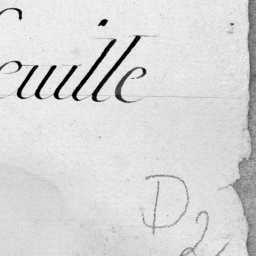 feuille
D2